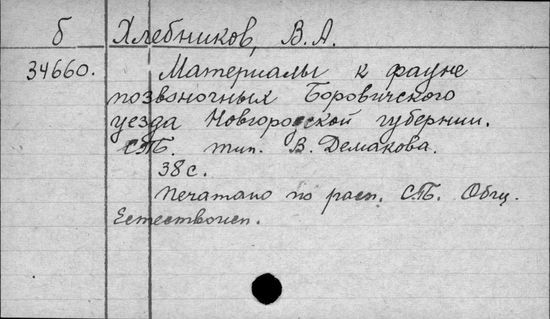 Б Хлебников, В.А.
34660. Материалы к фауне
позвоночных Боровичского
уезда Новгородской губернии.
СПБ. тип. В. Демакова.
38 с.
Печатано по расп. СПБ. Общ.
Естествоисп.